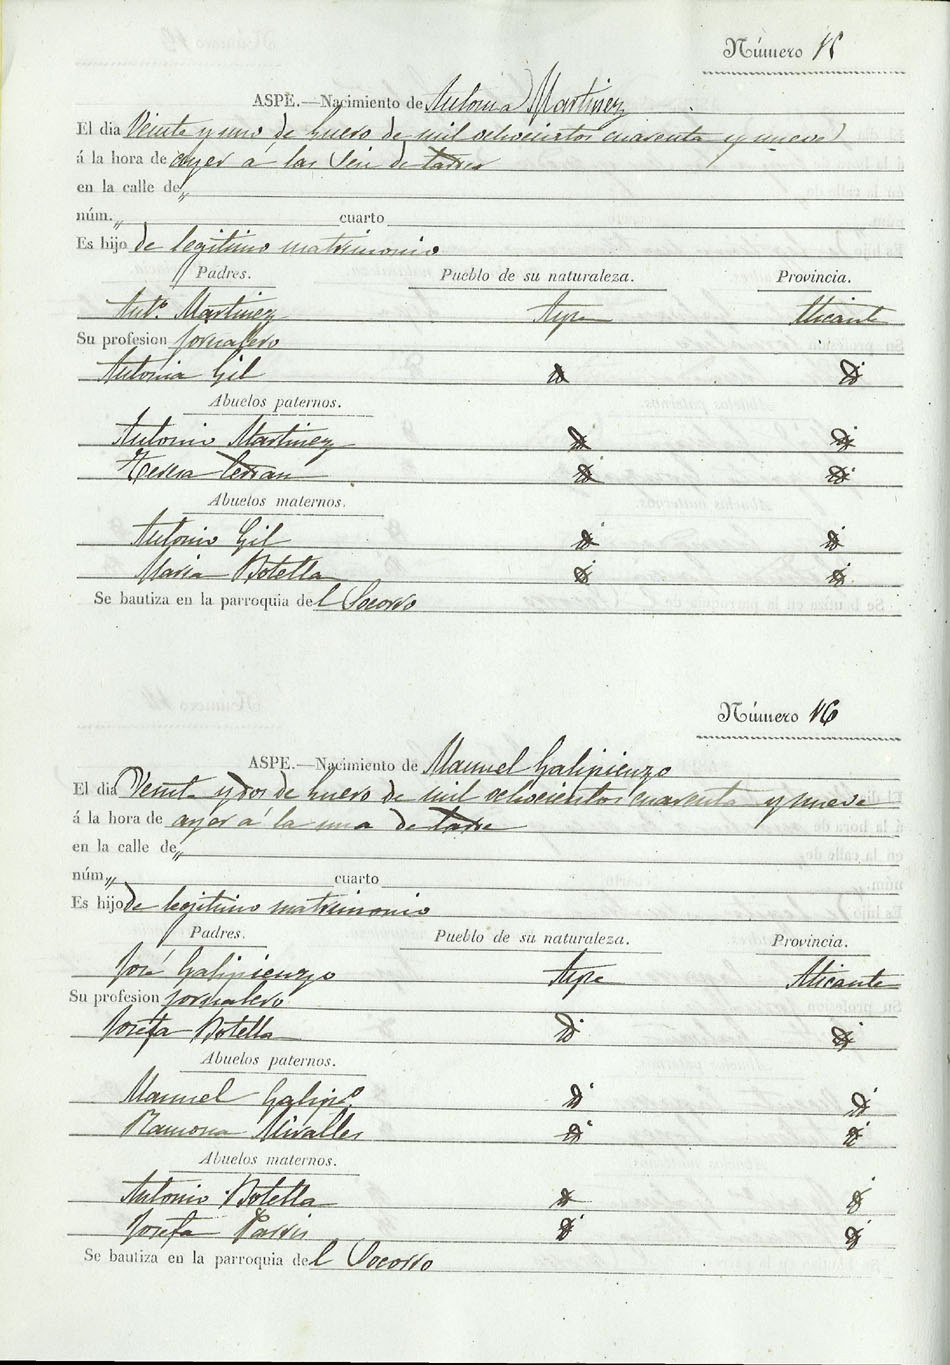 Número 15
ASPE.—Nacimiento de Antonia Martinez
El dia Veinte y uno de Enero de mil ochocientos cuarenta y nueve
á la hora de ayer á las Seis de tarde
en la calle de „
núm. „ cuarto
Es hijo de legitimo matrimonio
Padres. Pueblo de su naturaleza. Provincia.
Ant.º Martinez Aspe Alicante
Su profesion jornalero
Antonia Gil id id
Abuelos paternos.
Antonio Martinez id id
Teresa id id
Abuelos maternos.
Antonio Gil id id
Maria Botella id id
Se bautiza en la parroquia del Socorro
Número 16
ASPE.—Nacimiento de Manuel Galipienzo
El dia Veinte y dos de Enero de mil ochocientos cuarenta y nueve
á la hora de ayer á la una de tarde
en la calle de „
núm. „ cuarto
Es hijo de legitimo matrimonio
Padres. Pueblo de su naturaleza. Provincia.
José Galipienzo Aspe Alicante
Su profesion jornalero
Josefa Botella id id
Abuelos paternos.
Manuel Galip.º id id
Ramona Miralles id id
Abuelos maternos.
Antonio Botella id id
Josefa id id
Se bautiza en la parroquia del Socorro